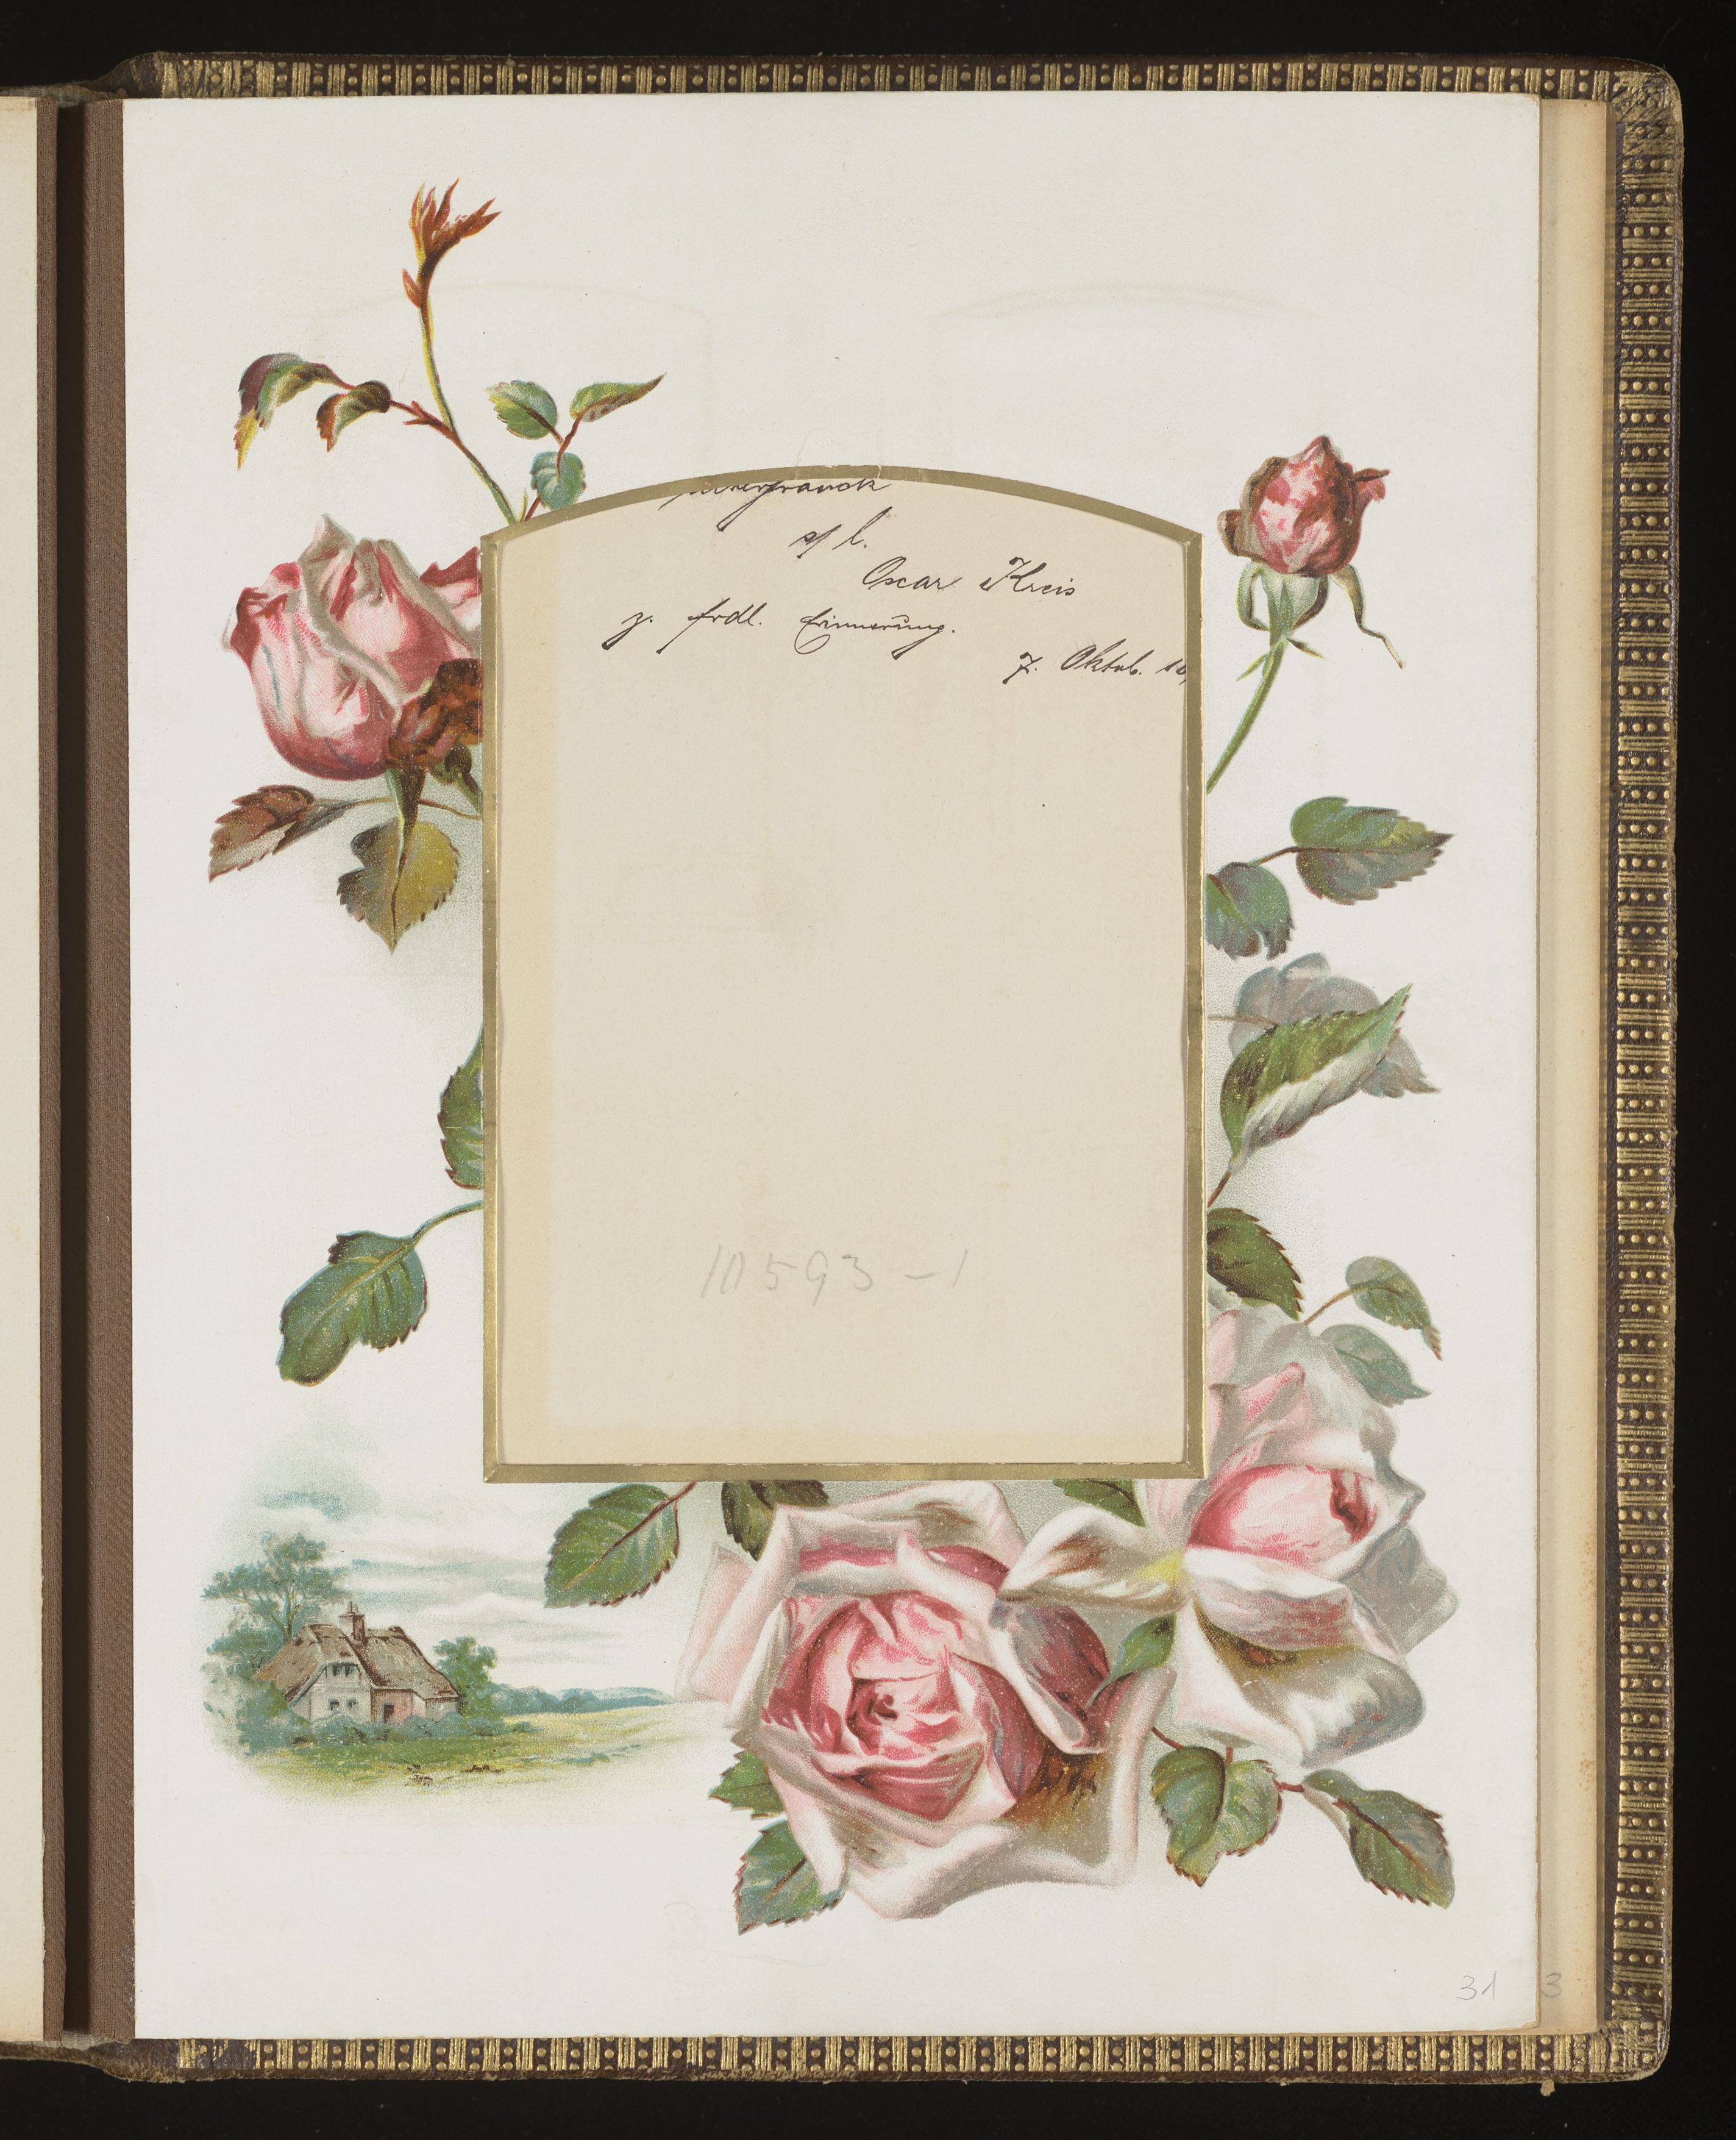 s/l.
Oscar Kreis
z. frdl. Erinnerung.
7. Oktob.
10593-1
31
3